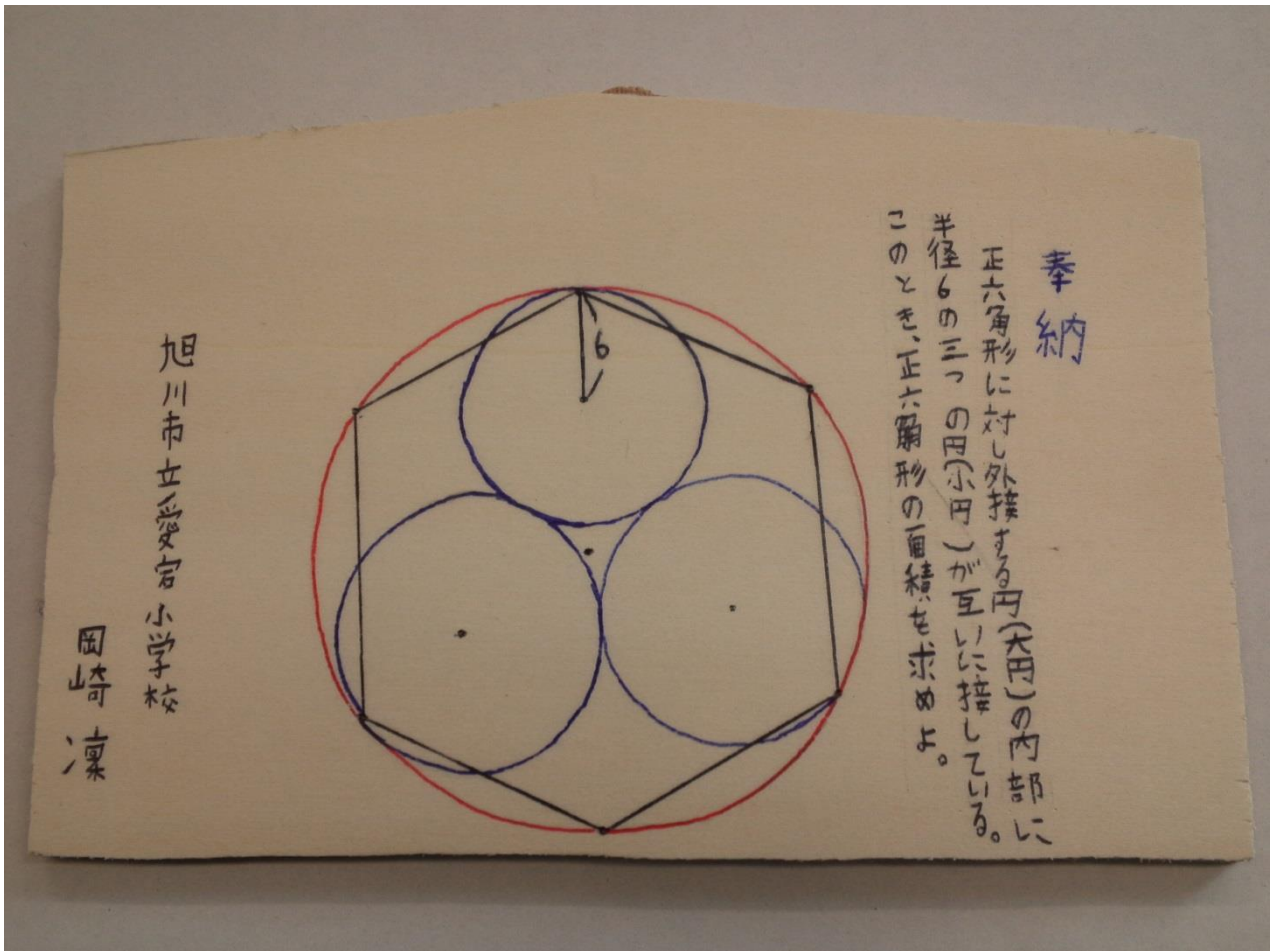 奉納
正六角形に対し外接する円(大円)の内部に
半径6の三つの円(小円)が互いに接している。
このとき、正六角形の面積を求めよ。
6
旭川市立愛宕小学校
岡崎凜